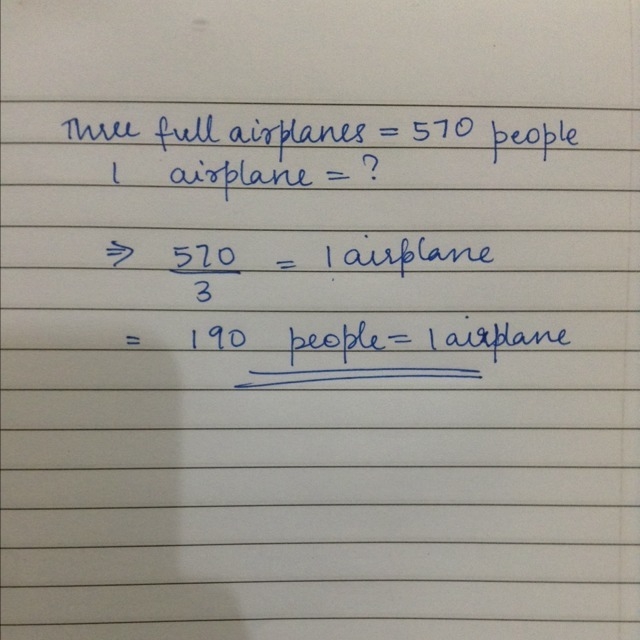 Three full airplanes = 570 people
1 airplane = ?
⇒ 570/3 = 1 airplane
= 190 people = 1 airplane